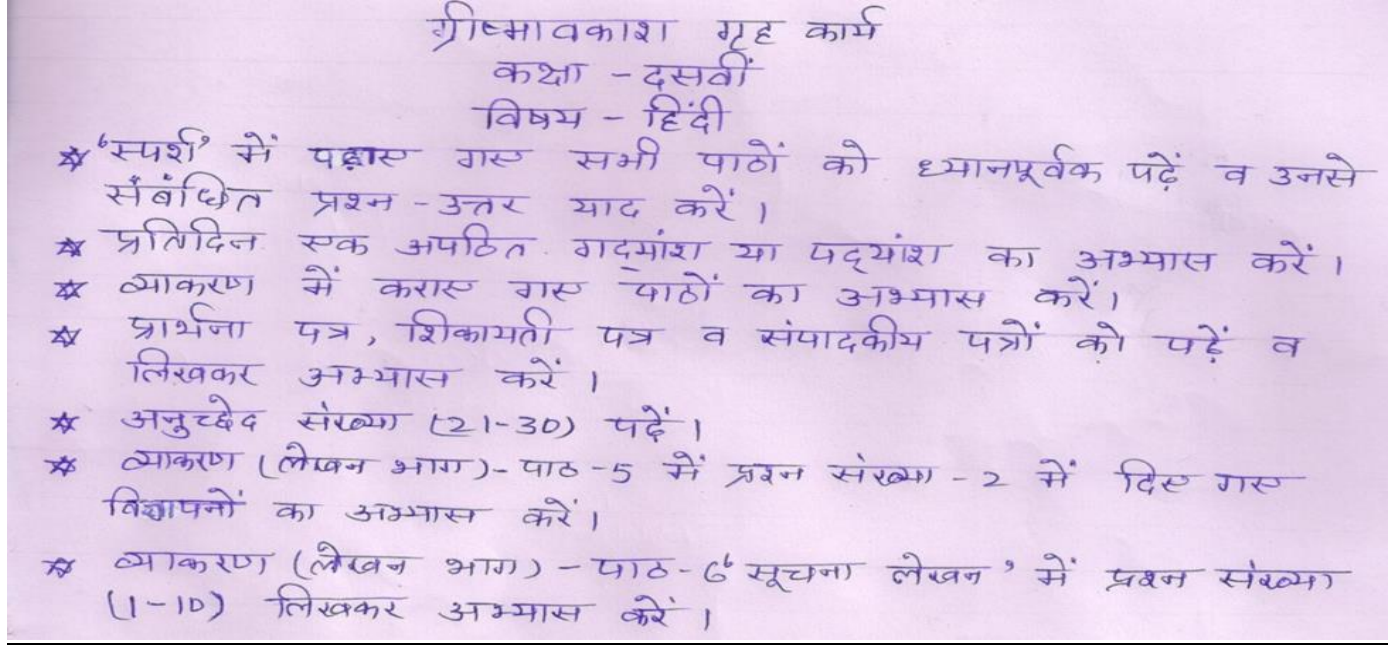 ग्रीष्मावकाश गृह कार्य
कक्षा - दसवीं
विषय - हिंदी
☆ 'स्पर्श' में पढ़ाए गए सभी पाठों को ध्यानपूर्वक पढ़ें व उनसे
संबंधित प्रश्न - उत्तर याद करें।
☆ प्रतिदिन एक अपठित गद्यांश या पद्यांश का अभ्यास करें।
☆ व्याकरण में कराए गए पाठों का अभ्यास करें।
☆ प्रार्थना पत्र, शिकायती पत्र व संपादकीय पत्रों को पढ़ें व
लिखकर अभ्यास करें।
☆ अनुच्छेद संख्या (21-30) पढ़ें।
☆ व्याकरण (लेखन भाग) - पाठ - 5 में प्रश्न संख्या - 2 में दिए गए
विज्ञापनों का अभ्यास करें।
☆ व्याकरण (लेखन भाग) - पाठ - 6 'सूचना लेखन' में प्रश्न संख्या
(1-10) लिखकर अभ्यास करें।